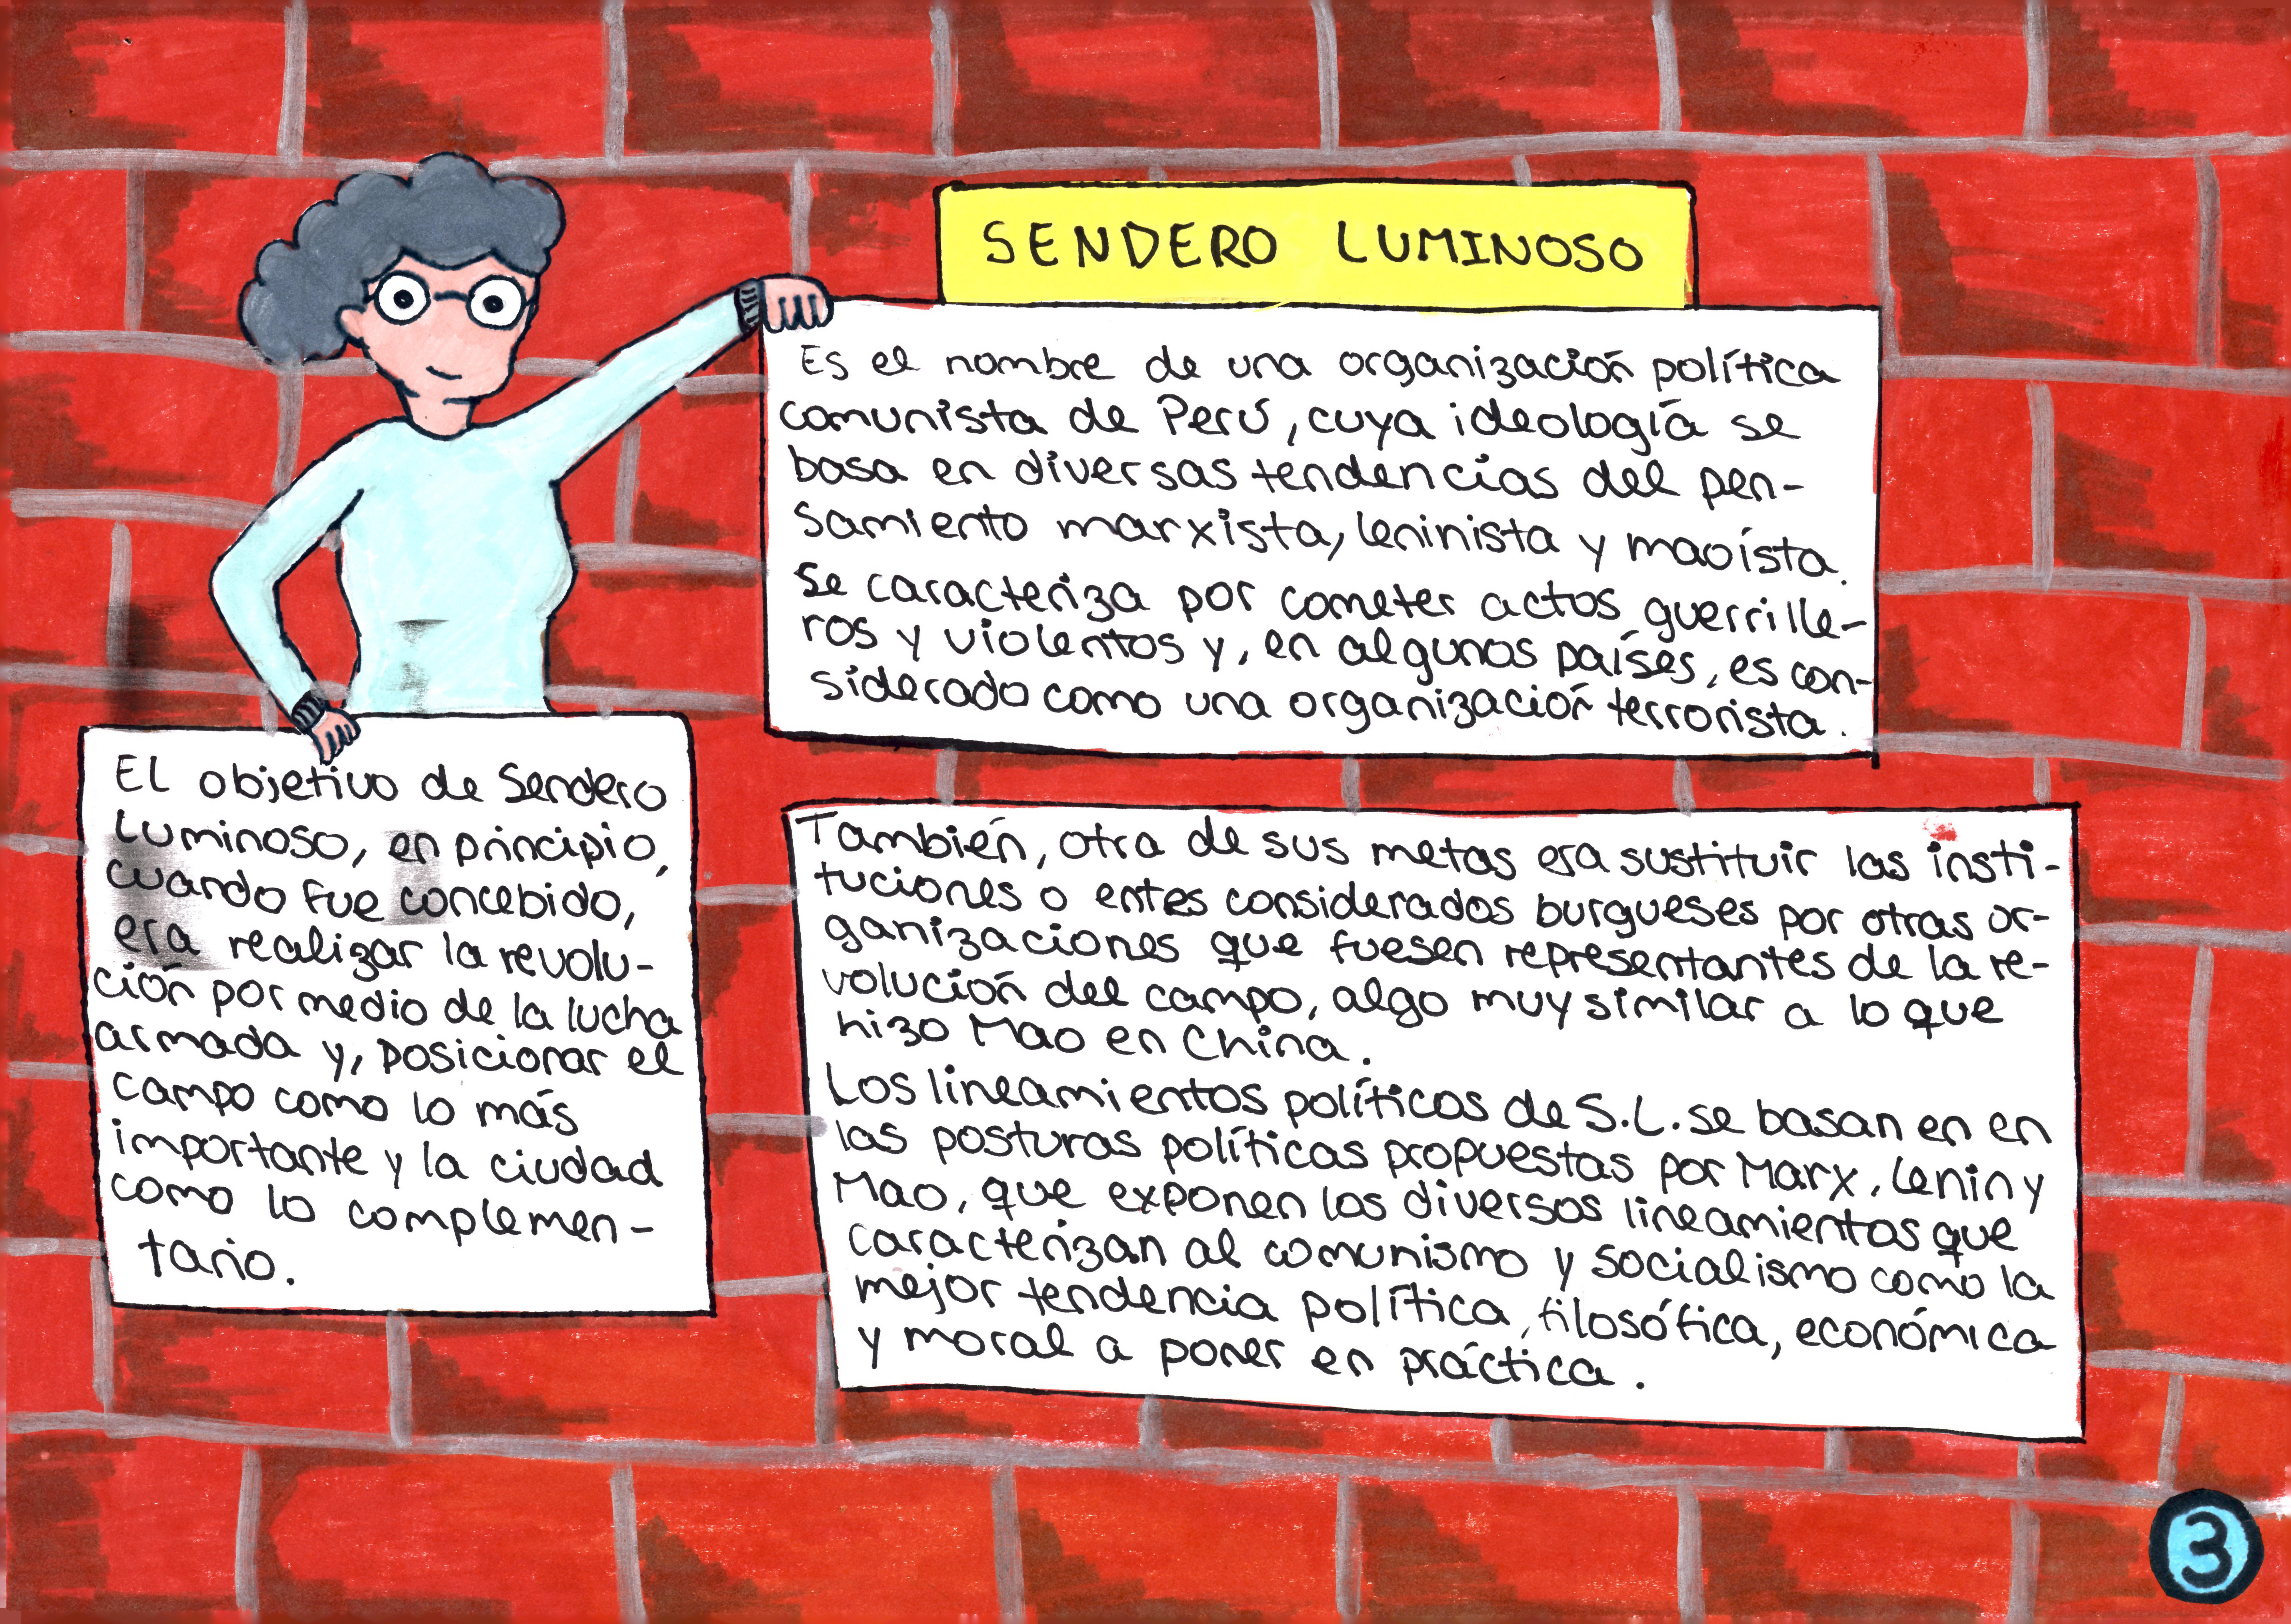 SENDERO LUMINOSO
Es el nombre de una organización política
comunista de Perú, cuya ideología se
basa en diversas tendencias del pen-
samiento marxista, leninista y maoísta.
Se caracteriza por cometer actos guerrille-
ros y violentos y, en algunos países, es con-
siderado como una organización terrorista.
El objetivo de Sendero
Luminoso, en principio,
cuando fue concebido,
era realizar la revolu-
ción por medio de la lucha
armada y, posicionar el
campo como lo más
importante y la ciudad
como lo complemen-
tario.
También, otra de sus metas era sustituir las insti-
tuciones o entes considerados burgueses por otras or-
ganizaciones que fuesen representantes de la re-
volución del campo, algo muy similar a lo que
hizo Mao en China.
Los lineamientos políticos de S.L. se basan en en
las posturas políticas propuestas por Marx, Lenin y
Mao, que exponen los diversos lineamientos que
caracterizan al comunismo y socialismo como la
mejor tendencia política, filosófica, económica
y moral a poner en práctica.
3